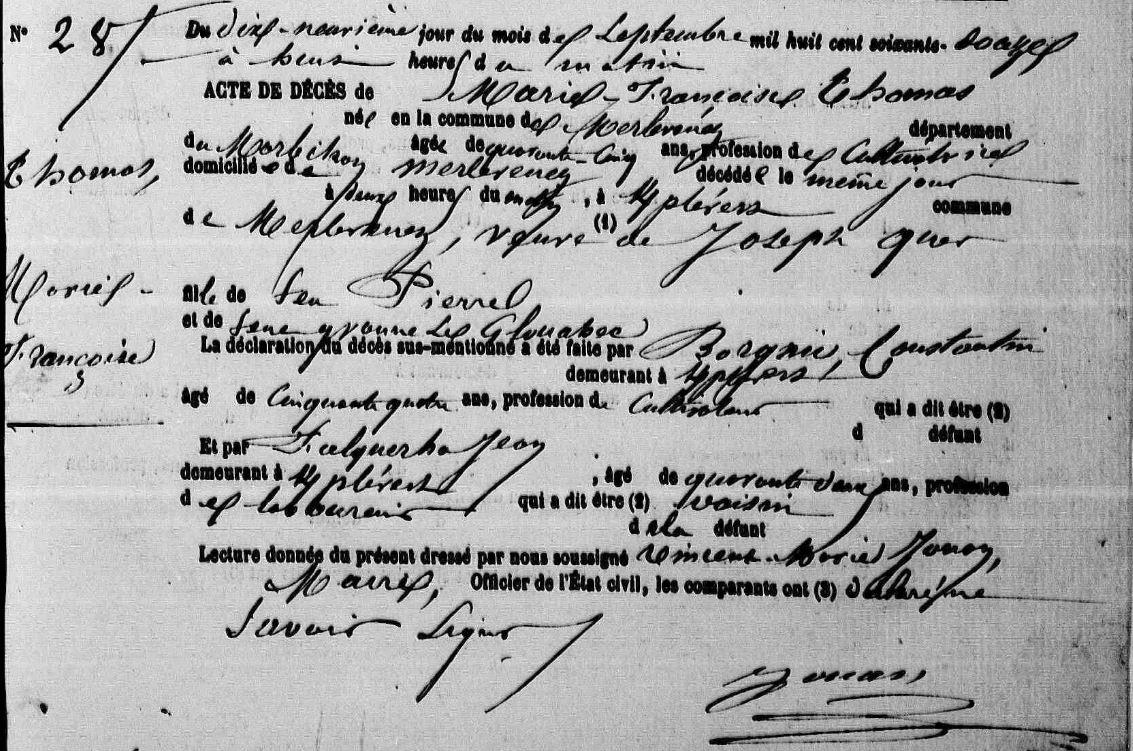 N° 28
Du dixe-neuvième jour du mois de Septembre mil huit cent soixante-douze
à heures du matin
ACTE DE DÉCÈS de Marie-Françoise Thomas
née en la commune de Merlevenez département
du Morbihan âgée de quarante-cinq ans, profession de Cultivatrice
Thomas,
domiciliée de merlevenez décédée le même jour
à deux heures du matin, à commune
de Merlevenez, veuve (1) de Joseph quer
Marie-
Françoise
fille de feu Pierre
et de feue yvonne Le Glouahec
La déclaration du décès sus-mentionné a été faite par Constantin
demeurant à
âgé de Cinquante quatre ans, profession de Cultivateur qui a dit être (2)
d défunt
Et par Jean
demeurant à , âgé de quarante deux ans, profession
de laboureur qui a dit être (2) voisin
de la défunt
Lecture donnée du présent dressé par nous soussigné Vincent-Marie Jouan,
Maire, Officier de l'État civil, les comparants ont (3) déclaré ne
Savoir Signer
Jouan